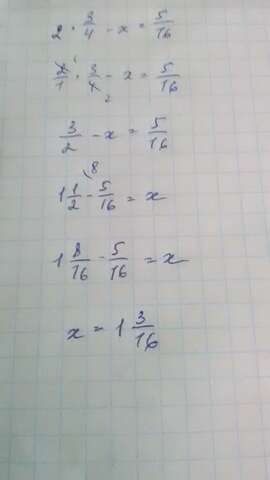 2 · 3/4 - x = 5/16
2/1 · 3/4 - x = 5/16
1 2
3/2 - x = 5/16
8
1 1/2 - 5/16 = x
1 8/16 - 5/16 = x
x = 1 3/16